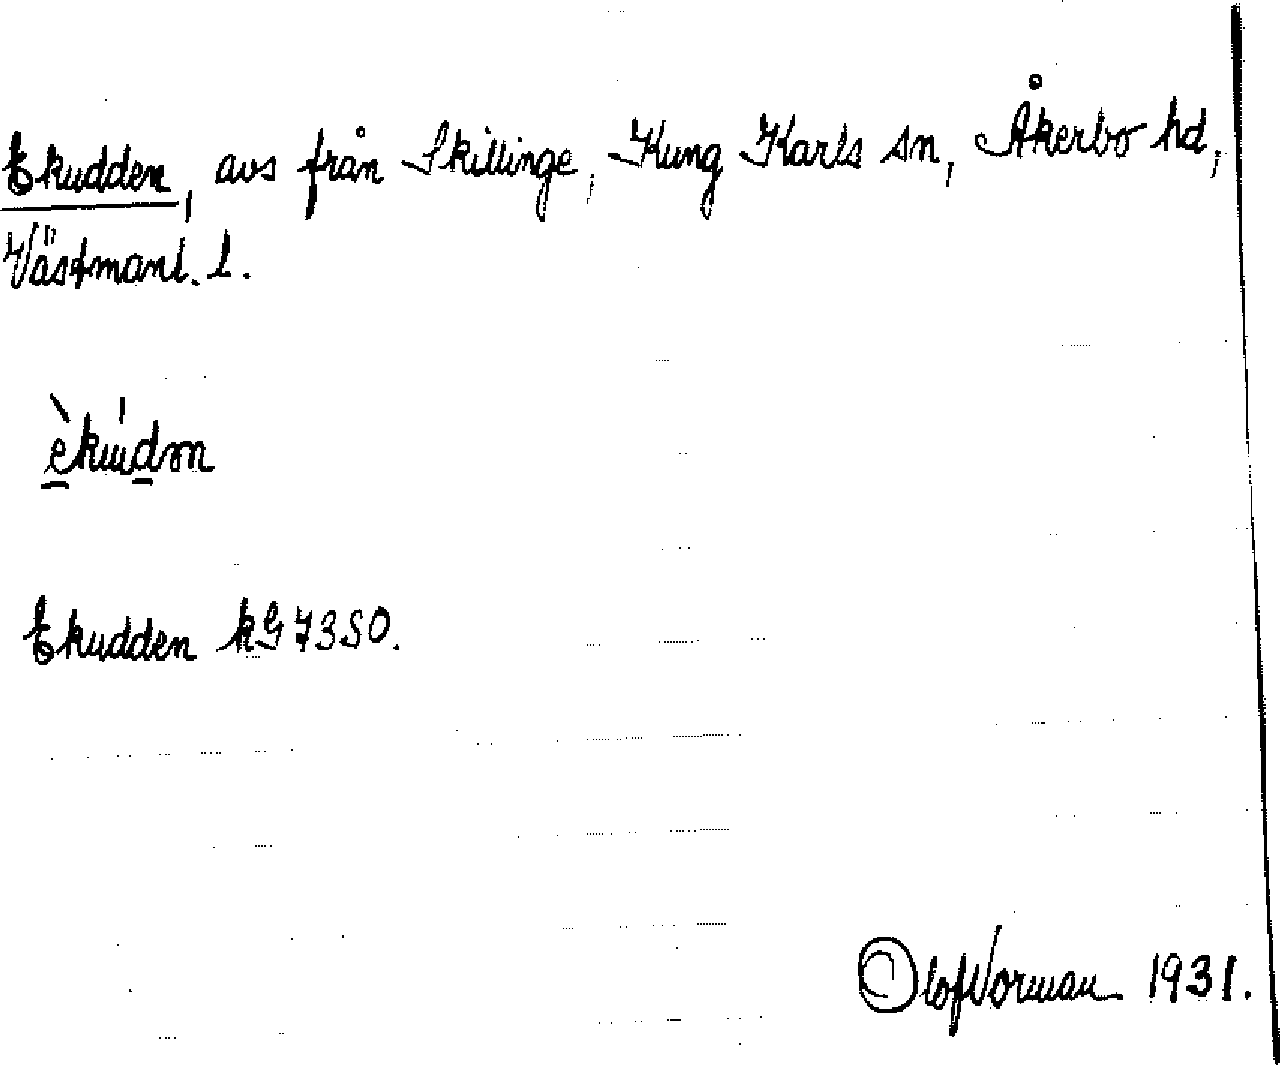 Ekudden, avs från Skillinge, Kung Karls sn, Åkerbo hd,
Västmanl. l.
Ekudden kG 73SO.
Olof Norman 1931.